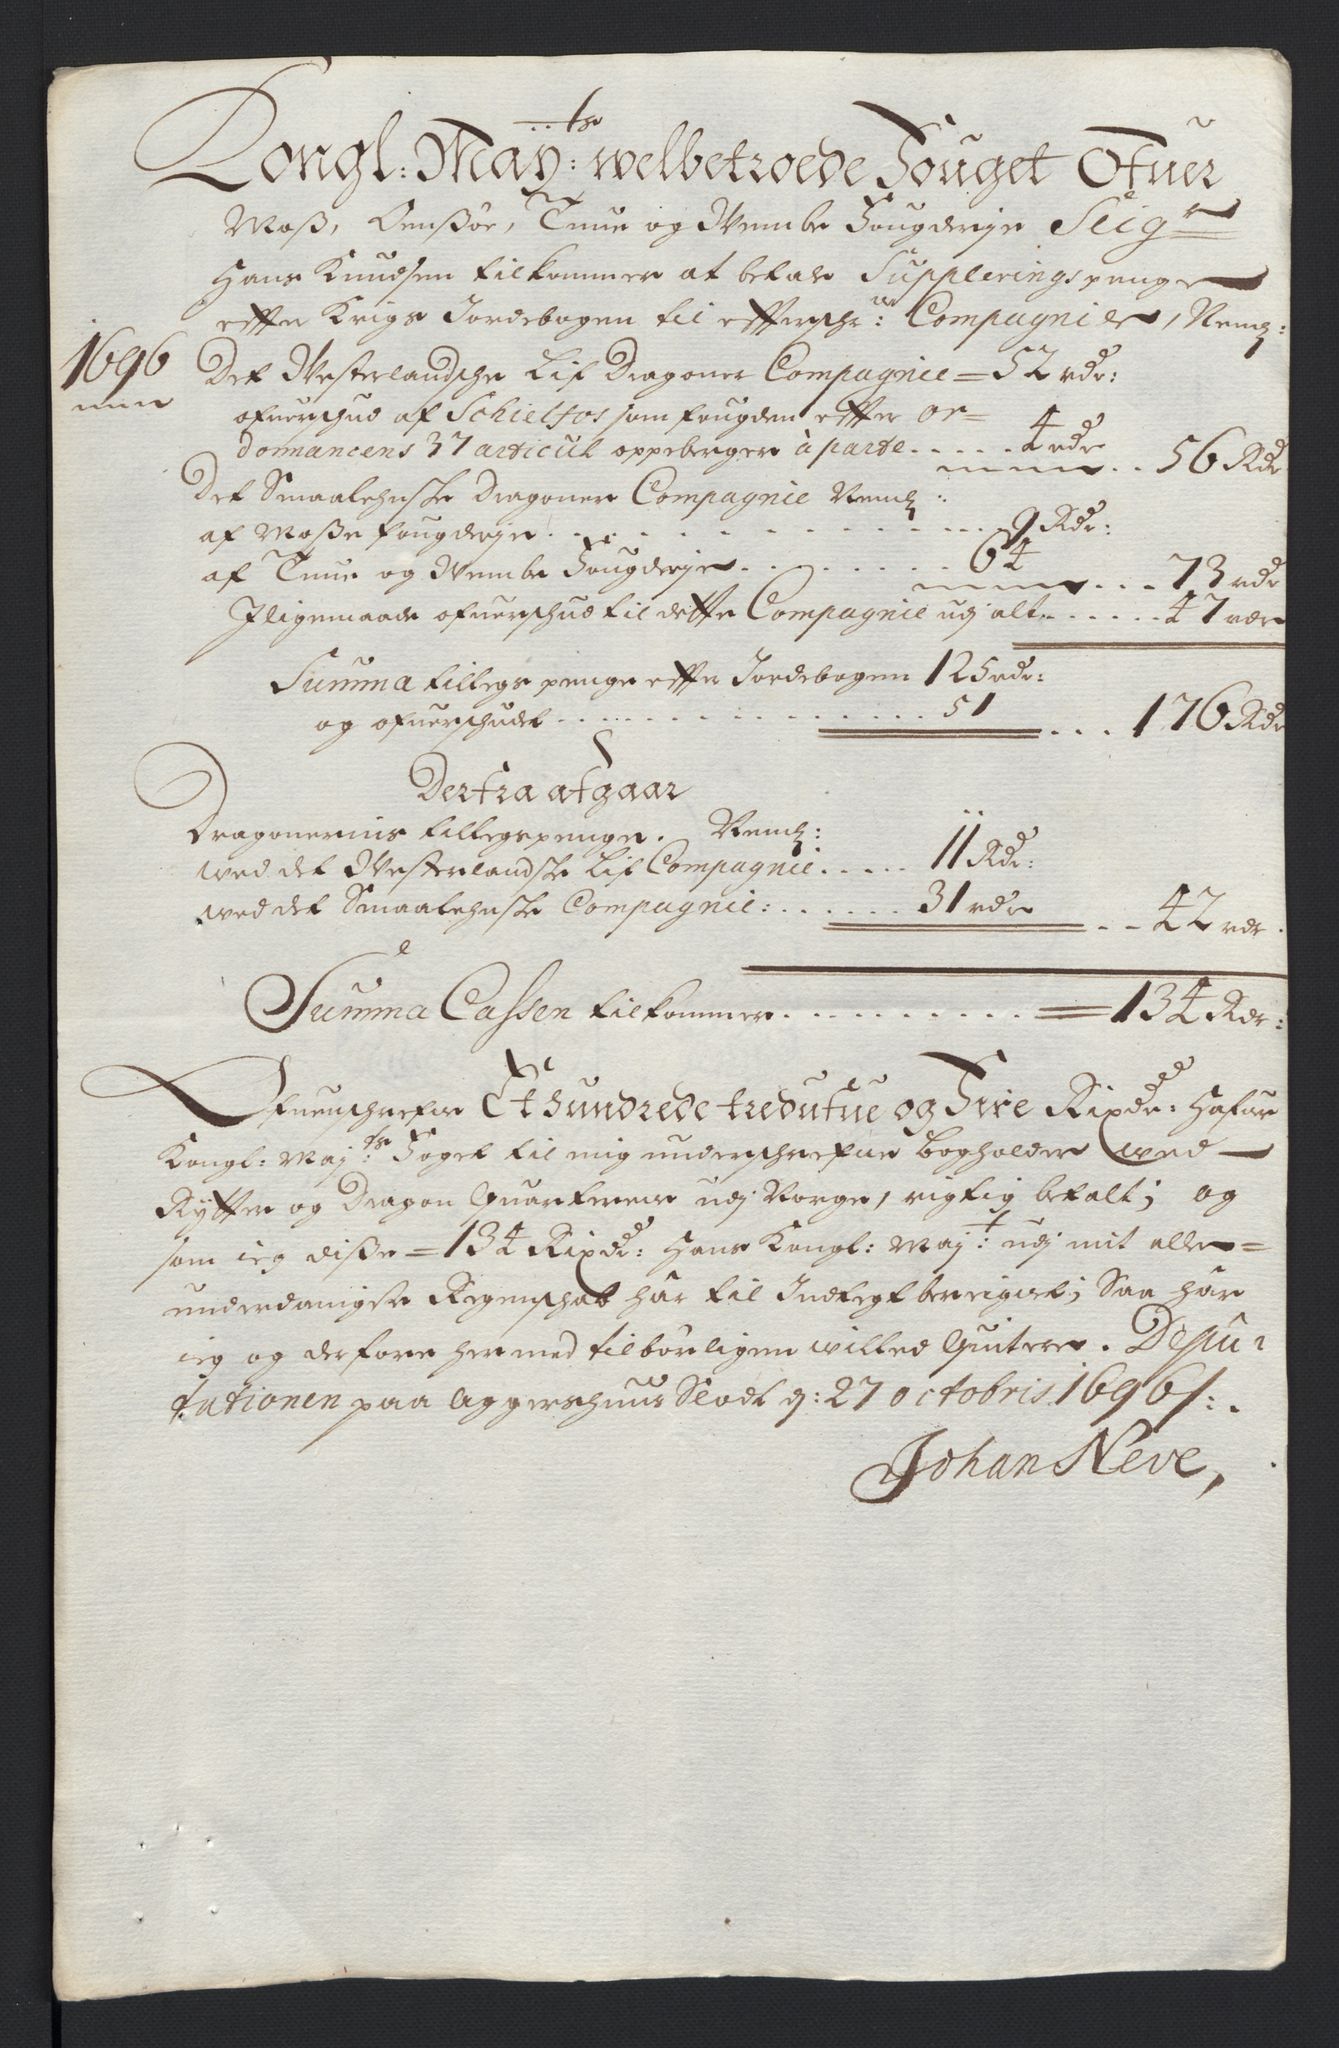 Kongl: May:ts welbetroede Fouget Ofuer
Moß, Onsøe, Tune og Wembe Fougderje Seigr
Hans Knudsen tilkommer at betale Suppleringspenge
effter Krigs Jordebogen til effterschr:ne Compagnier, Neml:
1696
Det Westerlandsche Lif Dragoner Compagnie = 52 rdr:
ofuerschud af Schieltjos som fougden effter or=
donnancens 37 articul oppeberger à parte..... 4 rdr
.. 56 Rdr
Det Smaalehnske Dragoner Compagnie Neml:
af Moße fougderje ............ 9 Rdr:
af Tune og Wembe Fougderje ......... 64
... 73 rdr
Jligemaade ofuerschud til dette Compagnie udj alt ...... 47 rdr
Summa tillegs penge effter Jordebogen 125 rdr:
og ofuerschudet ................ 51
... 176 Rdr
Derfra afgaar
Dragonernis tillegspenge. Neml:
wed det Westerlandske Lif Compagnie ..... 11 Rdr:
wed det Smaalehnske Compagnie: ...... 31 rdr
.. 42 rdr.
Summa Cassen tilkommer .......... = 134 Rdr:
Ofuenschrefne Et hundrede tredufue og Fire Rixdr: hafuer
Kongl: Maj:ts Foget til mig underschrefne Bogholder wed
Rytter og Dragon Quarterer udj Norge, rigtig betalt; og
som ieg diße = 134 Rixdr: Hans Kongl: Maj:t udj mit aller=
underdanigste Regenschab har til Indtegt bereignet; Saa har
ieg og derfore hermed tilbørligen willed Quitere. Depu=
tationen paa Aggershuus Slodt d: 27 octobris 1696 /:.
Johan Neve,